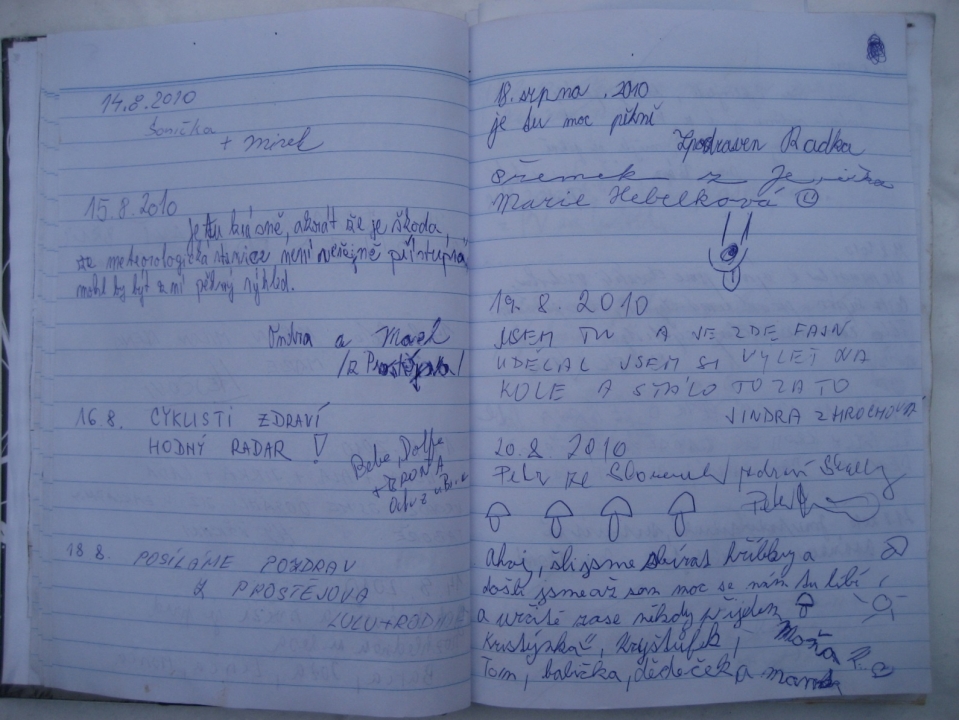 14.8.2010
Sonička
+ Mirek
15.8.2010
je tu krásně, akorát že je škoda,
že meteorologická stanice není veřejně přístupná
mohl by být z ní pěkný výhled.
a Mach
/z Prostějova/
16.8. CYKLISTI ZDRAVÍ
HODNÝ RADAR !
Bebe, Dolfe
+ BRONA
18 8. POSÍLÁME POZDRAV
Z PROSTĚJOVA
LULU+RODINA
18. srpna .2010
je tu moc pěkně
Radka
z
Marie Hebelková
19.8.2010
JSEM TU A JE ZDE FAJN
UDĚLAL JSEM SI VÝLET NA
KOLE A STÁLO TO ZA TO
JINDRA Z HROCHOVA
20.8 2010
Petr ze Slovenska
Petr
Ahoj, šli jsme sbírat hříbky a
došli jsme až sem moc se nám tu líbí
a určitě zase někdy přijdem
Kristýnka, Kryštůfek,
Tom, babička, dědeček a mamka